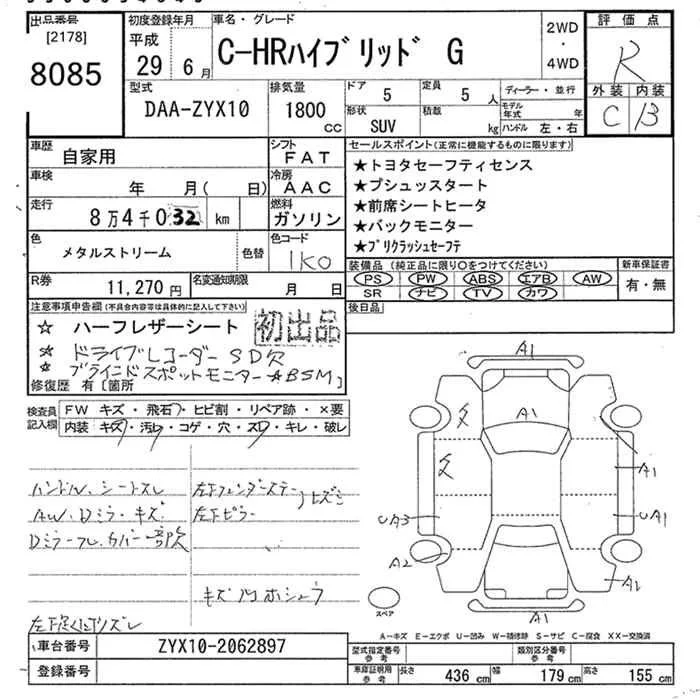 出品番号
[2178]
8085
初度登録年月
平成
29年6月
車名・グレード
C-HRハイブリッド G
2WD
・
4WD
評価点
R
外装 内装
C B
型式
DAA-ZYX10
排気量
1800
cc
ドア
5
定員
5 人
形状
SUV
積載
kg
ディーラー・並行
モデル年式 年
ハンドル 左・右
車歴
自家用
シフト
FAT
車検
年 月( 日)
冷房
AAC
走行
8万4千032 km
燃料
ガソリン
色
メタルストリーム
色替
色コード
1K0
R券
11,270 円
名変通知期限
月 日
セールスポイント(正常に機能するものに限ります)
★トヨタセーフティセンス
★プシュッスタート
★前席シートヒータ
★バックモニター
★プリクラッシュセーフテ
装備品(純正品に限り○をつけてください)
PS PW ABS エアB AW
SR ナビ TV カワ
新車保証書
有・無
後日品
注意事項申告欄(不具合内容等は具体的に記入して下さい)
☆ ハーフレザーシート
初出品
☆ ドライブレコーダーSD欠
☆ ブラインドスポットモニター ☆BSM
修復歴 有[箇所 ]
検査員記入欄
FW キズ・飛石・ヒビ割・リペア跡・×要
内装 キズ・汚レ・コゲ・穴・スレ・キレ・破レ
ハンドル、シートスレ
AW、Dミラーキズ
Dミラーフレ、カバー一部欠
左下フェンダーステー
左下ピラー
トヒズミ
キズ凹ホシュウ
A1
A1
A1
UA1
UA3
A2
A2
A1
スペア
A-キズ E-エクボ U-凹み W-補修跡 S-サビ C-腐食 XX-交換済
車台番号
ZYX10-2062897
登録番号
型式指定番号
参考
類別区分番号
参考
車庫証明用
参考
長さ 436 cm 幅 179 cm 高さ 155 cm